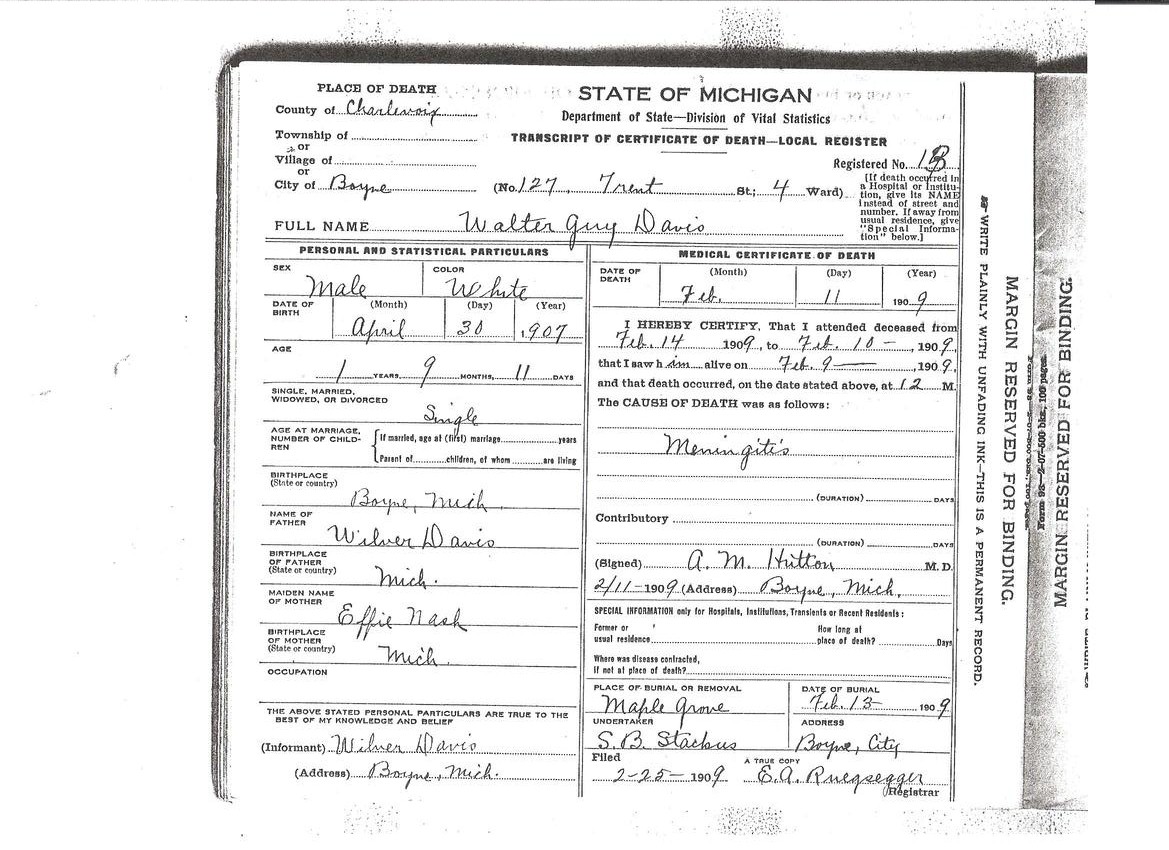 PLACE OF DEATH
County of Charlevoix
Township of
or
Village of
or
City of Boyne (No. 127 Trent St; 4 Ward)
STATE OF MICHIGAN
Department of State—Division of Vital Statistics
TRANSCRIPT OF CERTIFICATE OF DEATH—LOCAL REGISTER
Registered No.
[If death occurred in
a Hospital or Institu-
tion, give its NAME
instead of street and
number. If away from
usual residence, give
"Special Informa-
tion" below.]
FULL NAME Walter Guy Davis
PERSONAL AND STATISTICAL PARTICULARS
SEX Male
COLOR White
DATE OF BIRTH
(Month) (Day) (Year)
April 30 1907
AGE
1 YEARS, 9 MONTHS, 11 DAYS
SINGLE, MARRIED,
WIDOWED, OR DIVORCED
Single
AGE AT MARRIAGE,
NUMBER OF CHILD-
REN
If married, age at (first) marriage years
Parent of children, of whom are living
BIRTHPLACE
(State or country)
Boyne, Mich
NAME OF
FATHER
Wilver Davis
BIRTHPLACE
OF FATHER
(State or country)
Mich.
MAIDEN NAME
OF MOTHER
Effie Nash
BIRTHPLACE
OF MOTHER
(State or country)
Mich
OCCUPATION
THE ABOVE STATED PERSONAL PARTICULARS ARE TRUE TO THE
BEST OF MY KNOWLEDGE AND BELIEF
(Informant) Wilver Davis
(Address) Boyne, Mich.
MEDICAL CERTIFICATE OF DEATH
DATE OF
DEATH
(Month) (Day) (Year)
Feb. 11 1909
I HEREBY CERTIFY, That I attended deceased from
Feb. 14 1909, to Feb. 10 — 1909,
that I saw him alive on Feb. 9 — 1909,
and that death occurred, on the date stated above, at 12 M.
The CAUSE OF DEATH was as follows:
Meningitis
(DURATION) DAYS
Contributory
(DURATION) DAYS
(Signed) A. M. Hutton M.D.
2/11-1909 (Address) Boyne, Mich.
SPECIAL INFORMATION only for Hospitals, Institutions, Transients or Recent Residents:
Former or
usual residence
How long at
place of death? Days
Where was disease contracted,
if not at place of death?
PLACE OF BURIAL OR REMOVAL
Maple Grove
DATE OF BURIAL
Feb. 13 — 1909
UNDERTAKER
S. B. Stackus
ADDRESS
Boyne, City
Filed
2-25- 1909
A TRUE COPY
E. A. Ruegsegger
Registrar
WRITE PLAINLY WITH UNFADING INK—THIS IS A PERMANENT RECORD.
MARGIN RESERVED FOR BINDING.
MARGIN RESERVED FOR BINDING.